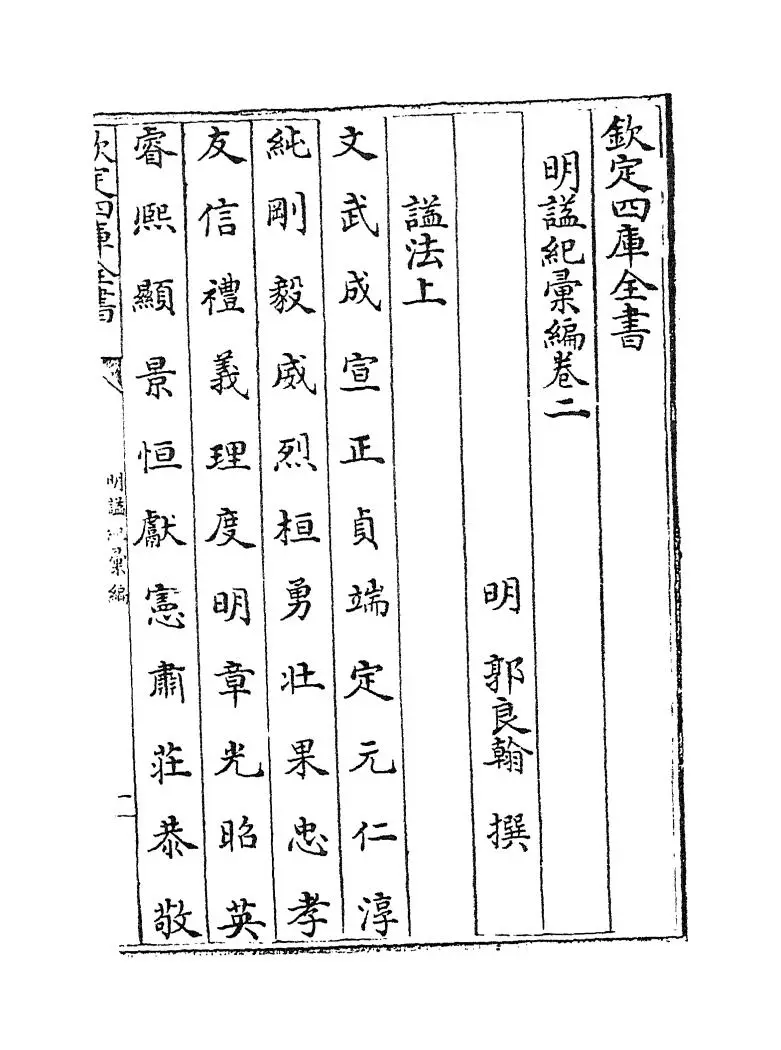 欽定四庫全書
明諡紀彙編卷二
明 郭良翰 撰
諡法上
文武成宣正貞端定元仁淳
純剛毅威烈桓勇壯果忠孝
友信禮義理度明章光昭英
睿熙顯景恒獻憲肅莊恭敬
欽定四庫全書
明諡紀彙編